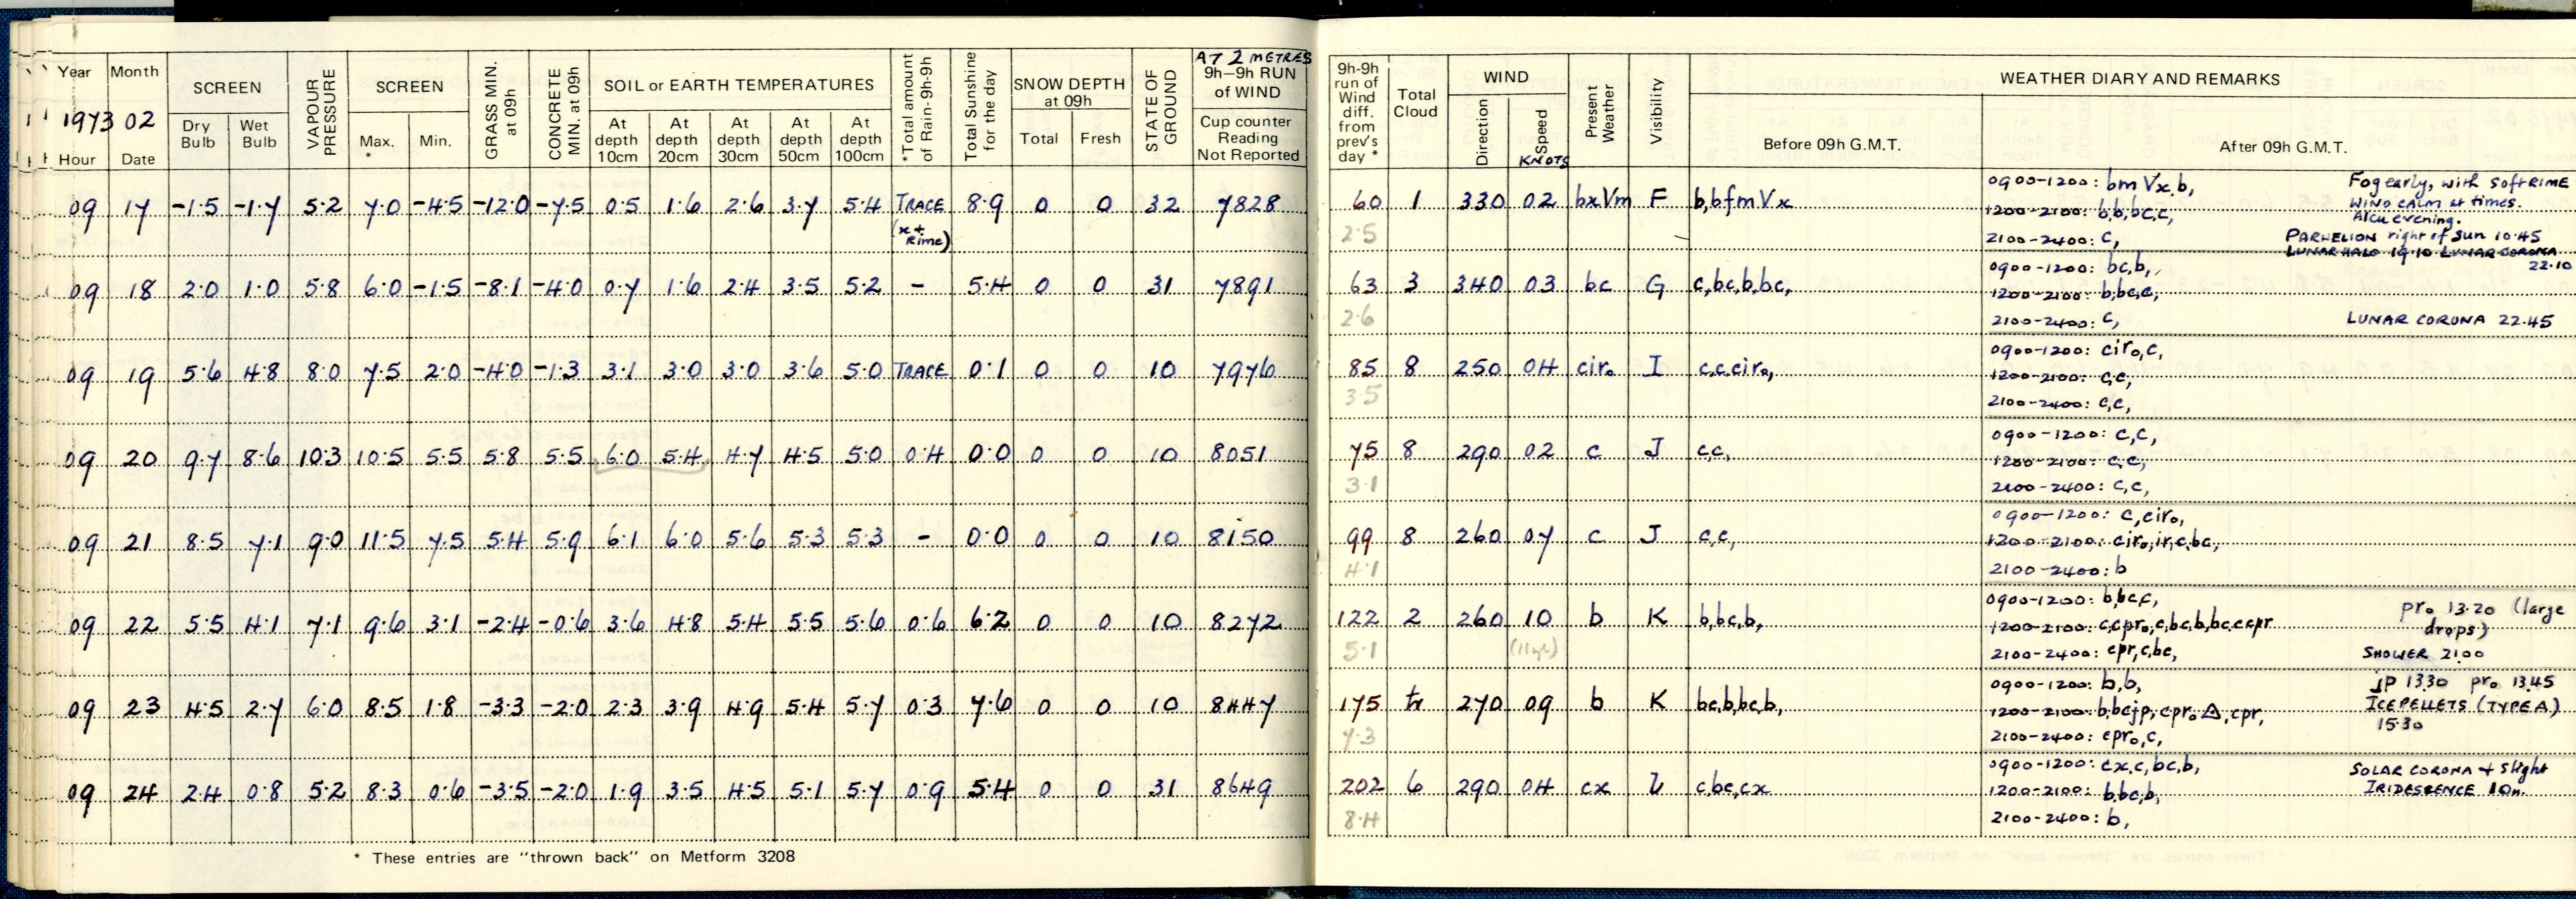 AT 2 METRES
Year Month SCREEN VAPOUR PRESSURE SCREEN GRASS MIN. at 09h CONCRETE MIN. at 09h SOIL or EARTH TEMPERATURES *Total amount of Rain-9h-9h Total Sunshine for the day SNOW DEPTH at 09h STATE OF GROUND 9h–9h RUN of WIND
1973 02 Dry Bulb Wet Bulb Max. * Min. At depth 10cm At depth 20cm At depth 30cm At depth 50cm At depth 100cm Total Fresh Cup counter Reading Not Reported
Hour Date
09 17 -1·5 -1·7 5·2 7·0 -4·5 -12·0 -7·5 0·5 1·6 2·6 3·7 5·4 TRACE 8·9 0 0 32 7828
(x + Rime)
09 18 2·0 1·0 5·8 6·0 -1·5 -8·1 -4·0 0·7 1·6 2·4 3·5 5·2 - 5·4 0 0 31 7891
09 19 5·6 4·8 8·0 7·5 2·0 -4·0 -1·3 3·1 3·0 3·0 3·6 5·0 TRACE 0·1 0 0 10 7976
09 20 9·7 8·6 10·3 10·5 5·5 5·8 5·5 6·0 5·4 4·7 4·5 5·0 0·4 0·0 0 0 10 8051
09 21 8·5 7·1 9·0 11·5 7·5 5·4 5·9 6·1 6·0 5·6 5·3 5·3 - 0·0 0 0 10 8150
09 22 5·5 4·1 7·1 9·6 3·1 -2·4 -0·6 3·6 4·8 5·4 5·5 5·6 0·6 6·2 0 0 10 8272
09 23 4·5 2·7 6·0 8·5 1·8 -3·3 -2·0 2·3 3·9 4·9 5·4 5·7 0·3 7·6 0 0 10 8447
09 24 2·4 0·8 5·2 8·3 0·6 -3·5 -2·0 1·9 3·5 4·5 5·1 5·7 0·9 5·4 0 0 31 8649
* These entries are "thrown back" on Metform 3208
9h-9h run of Wind diff. from prev's day * Total Cloud WIND Present Weather Visibility WEATHER DIARY AND REMARKS
Direction Speed KNOTS Before 09h G.M.T. After 09h G.M.T.
60 1 330 02 bxVm F b,bfmVx 0900-1200: bmVx,b, Fog early, with soft RIME
WIND CALM at times.
2·5 1200-2100: b,b,bc,c, Alcu evening.
2100-2400: c, PARHELION right of sun 10·45
LUNAR HALO 19·10 LUNAR CORONA 22·10
63 3 340 03 bc G c,bc,b,bc, 0900-1200: bc,b,
2·6 1200-2100: b,bc,c,
2100-2400: c, LUNAR CORONA 22·45
85 8 250 04 cir₀ I c,c,cir₀, 0900-1200: cir₀,c,
3·5 1200-2100: c,c,
2100-2400: c,c,
75 8 290 02 c J c,c, 0900-1200: c,c,
3·1 1200-2100: c,c,
2100-2400: c,c,
99 8 260 07 c J c,c, 0900-1200: c,cir₀,
4·1 1200-2100: cir₀,ir,c,bc,
2100-2400: b
122 2 260 10 b K b,bc,b, 0900-1200: b,bc,c, pr₀ 13·20 (large drops)
5·1 1200-2100: c,cpr₀,c,bc,b,bc,c,cpr
2100-2400: cpr,c,bc, SHOWER 2100
175 tr 270 09 b K bc,b,bc,b, 0900-1200: b,b, jp 1330 pr₀ 13·45
7·3 1200-2100: b,bcjp,cpr₀△,cpr, ICE PELLETS (TYPE A) 15·30
2100-2400: cpr₀,c,
202 6 290 04 cx c,bc,cx 0900-1200: cx,c,bc,b, SOLAR CORONA + Slight
8·4 1200-2100: b,bc,b, IRIDESRENCE
2100-2400: b,